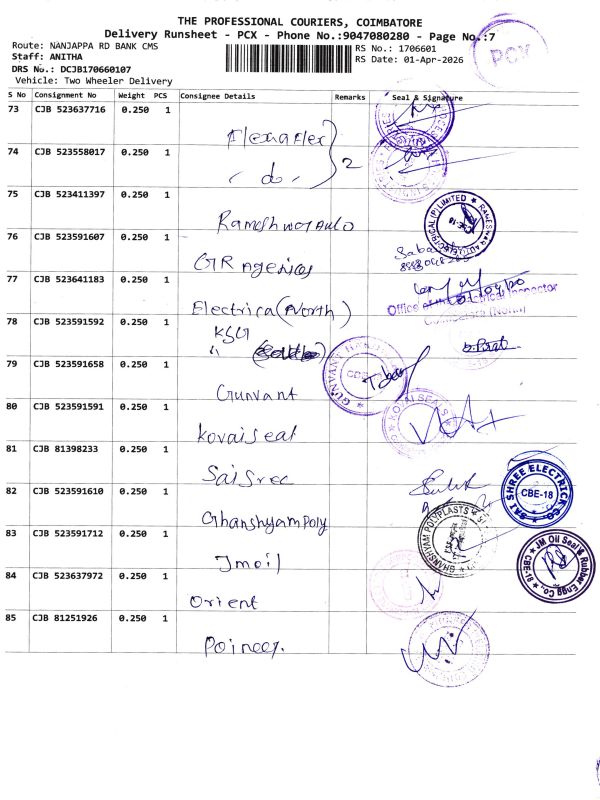 THE PROFESSIONAL COURIERS, COIMBATORE
Delivery Runsheet - PCX - Phone No.:9047080280 - Page No.:7
PCX
Route: NANJAPPA RD BANK CMS
Staff: ANITHA
DRS No.: DCJB170660107
Vehicle: Two Wheeler Delivery
RS No.: 1706601
RS Date: 01-Apr-2026
S No Consignment No Weight PCS Consignee Details Remarks Seal & Signature
73 CJB 523637716 0.250 1 Flexaflex
74 CJB 523558017 0.250 1 - do - 2
75 CJB 523411397 0.250 1 Rameshwar Auto
RAMESHWAR AUTO ELECTRICAL (P) LIMITED CBE-18
76 CJB 523591607 0.250 1 GR Agencies
77 CJB 523641183 0.250 1 Electrica (North)
Office of the Electrical Inspector
Coimbatore (North)
78 CJB 523591592 0.250 1 KSG
79 CJB 523591658 0.250 1 Gunvant
GUNVANT CBE
80 CJB 523591591 0.250 1 Kovai Seal
KOVAI SEALS
81 CJB 81398233 0.250 1 Sai Sree
SAI SHREE ELECTRICK CO. CBE-18
82 CJB 523591610 0.250 1 Ghanshyam Poly
GHANSHYAM POLYPLASTS
83 CJB 523591712 0.250 1 Jmoil
JM Oil Seal & Rubber Engg Co. CBE-18
84 CJB 523637972 0.250 1 Orient
85 CJB 81251926 0.250 1 Poineer